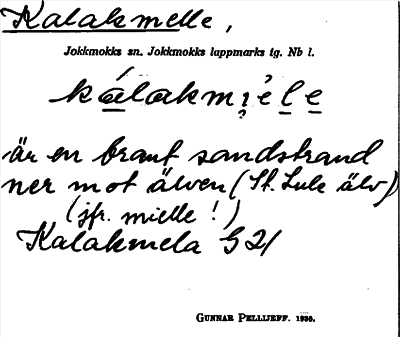 Kalakmelle,
Jokkmokks sn. Jokkmokks lappmarks tg. Nb l.
kálakmi̯ele
är en brant sandstrand
ner mot älven (St. Lule älv)
(jfr. mielle!)
Kalakmela G21
GUNNAR PELLIJEFF. 1936.